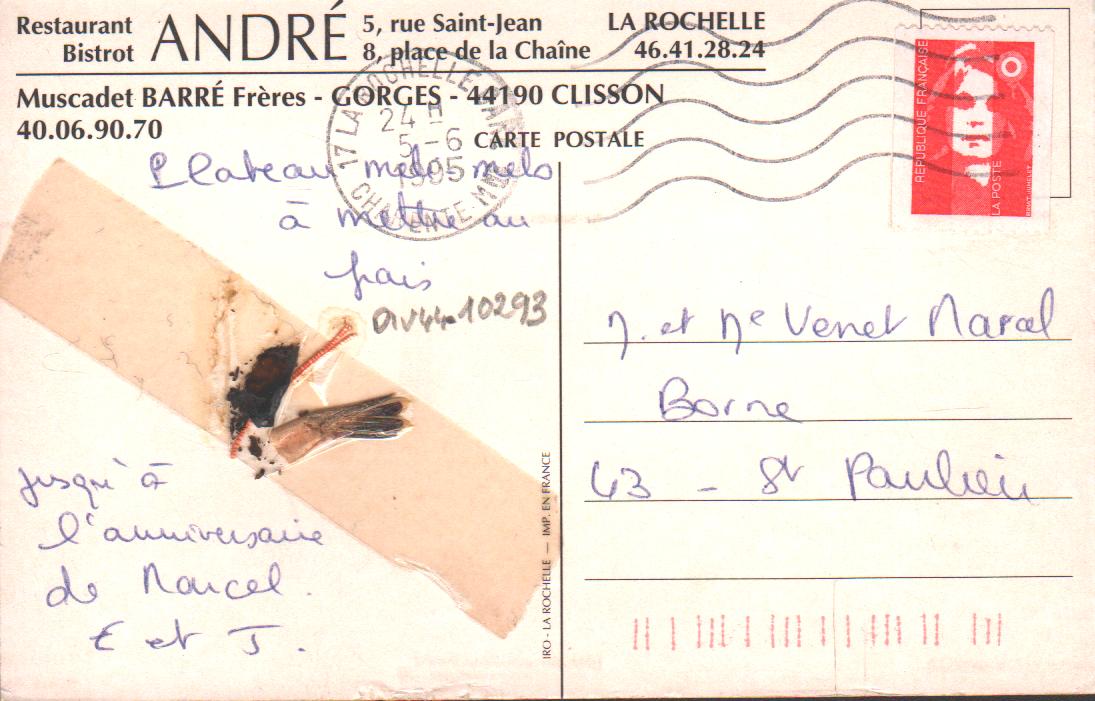 Restaurant Bistrot ANDRÉ 5, rue Saint-Jean LA ROCHELLE
8, place de la Chaîne 46.41.28.24
Muscadet BARRÉ Frères - GORGES - 44190 CLISSON
40.06.90.70
CARTE POSTALE
17 LA ROCHELLE
24 H
5-6
1995
CHARENTE-M
Plateau melo-melo
à mettre au
frais
DIV44-10293
jusqu'à
l'anniversaire
de Marcel.
E et J.
IRO - LA ROCHELLE — IMP. EN FRANCE
RÉPUBLIQUE FRANÇAISE
LA POSTE
M. et Me Venet Marcel
Borne
43 - St Paulien